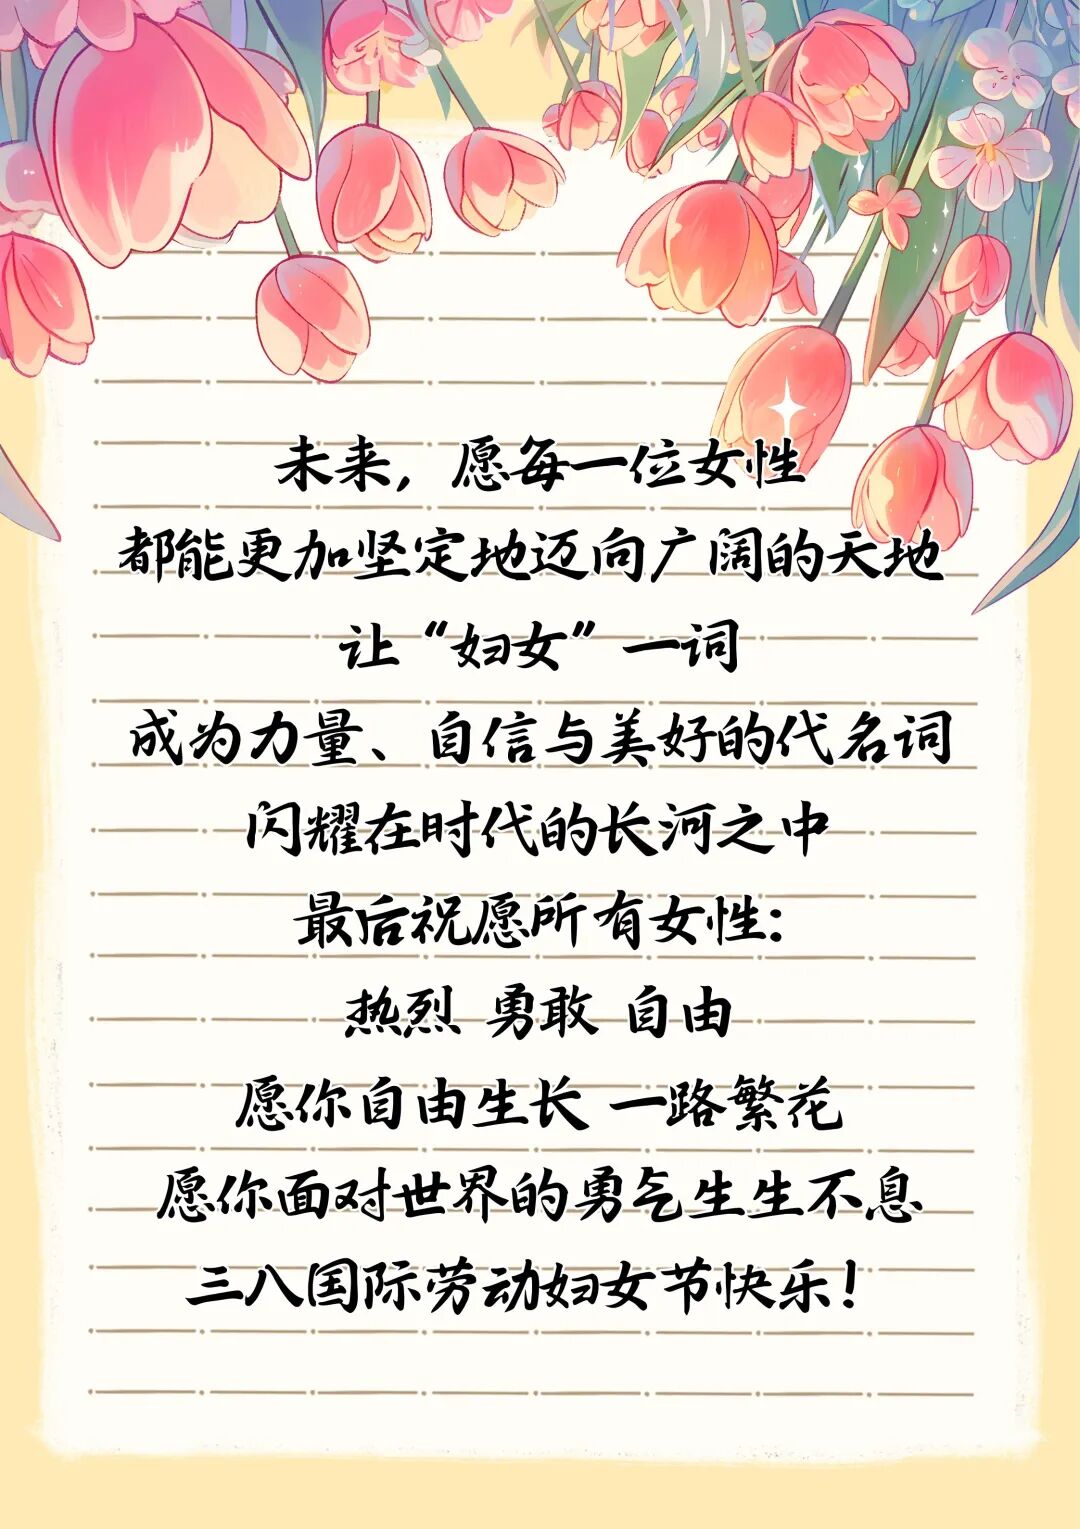 未来，愿每一位女性
都能更加坚定地迈向广阔的天地
让“妇女”一词
成为力量、自信与美好的代名词
闪耀在时代的长河之中
最后祝愿所有女性：
热烈 勇敢 自由
愿你自由生长 一路繁花
愿你面对世界的勇气生生不息
三八国际劳动妇女节快乐！